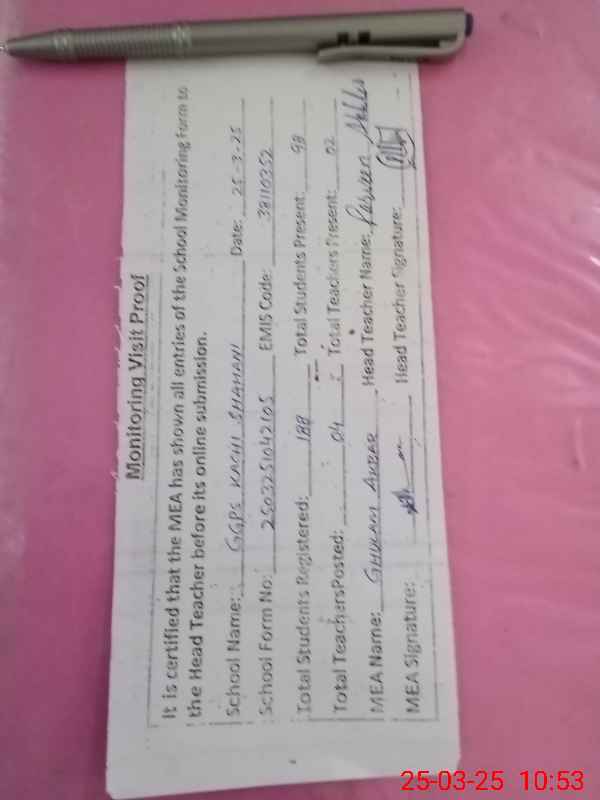 Monitoring Visit Proof
It is certified that the MEA has shown all entries of the School Monitoring Form to
the Head Teacher before its online submission.
School Name: GGPS KACHI SHAHANI Date: 25-3-25
School Form No: 2503251042105 EMIS Code: 38110352
Total Students Registered: 188 Total Students Present: 98
Total TeachersPosted: 04 Total Teachers Present: 02
MEA Name: GHULAM AKBAR Head Teacher Name: Parveen
MEA Signature: Head Teacher Signature:
25-03-25 10:53